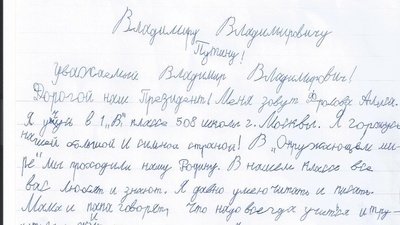 Владимиру Владимировичу
Путину!
Уважаемый Владимир Владимирович!
Дорогой наш Президент! Меня зовут Фролова Алиса.
Я учусь в 1 „В" классе 508 школы г. Москвы. Я горжусь
нашей большой и сильной страной! В „Окружающем ми-
ре" мы проходили нашу Родину. В нашем классе все
вас любят и знают. Я давно умею читать и писать.
Мама и папа говорят, что надо всегда учиться и тру-